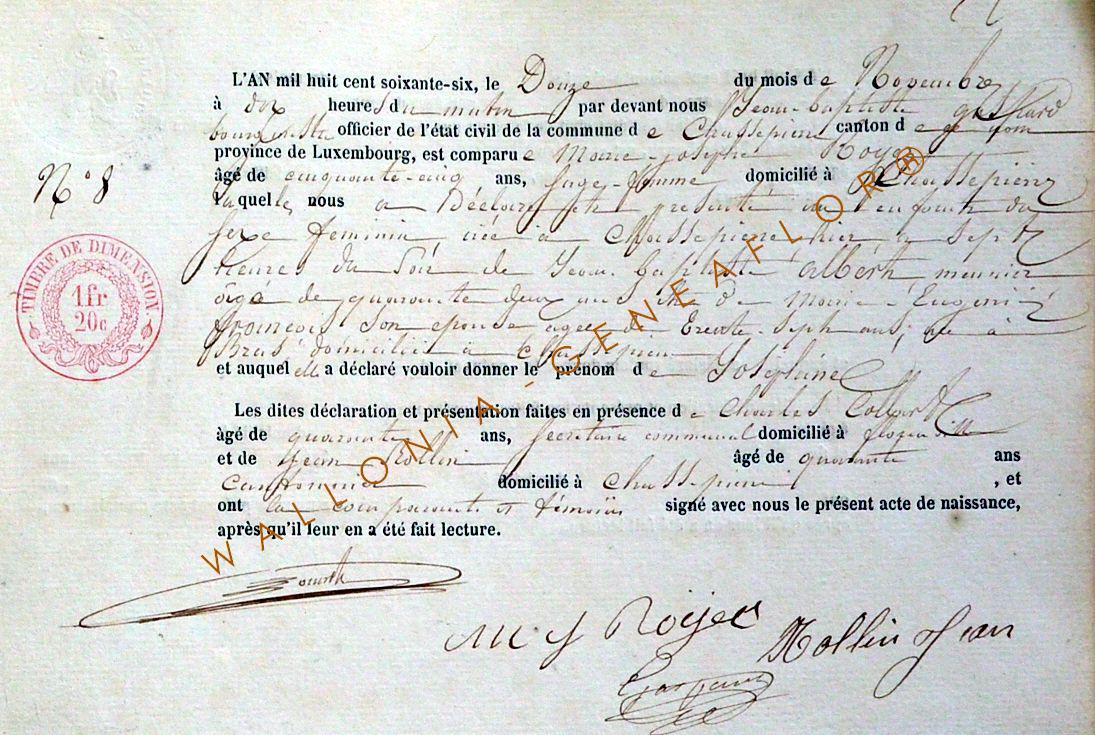 L'AN mil huit cent soixante-six, le Douze du mois de Novembre
à dix heures du matin par devant nous Jean-baptiste
bourgmestre officier de l'état civil de la commune de Chassepierre canton de
province de Luxembourg, est comparue Marie-josephe Royer
N° 8
âgé de cinquante-cinq ans, sage-femme domicilié à Chassepierre
laquelle nous a Déclaré et présenté un enfant du
sexe féminin, née à Chassepierre hier à sept
heures du soir de Jean baptiste albert meunier
âgé de quarante deux ans et de Marie-Eugénie
françois son épouse agée de trente-sept ans, née à
domiciliés à Chassepierre
et auquel elle a déclaré vouloir donner le prénom de Joséphine
TIMBRE DE DIMENSION
1 fr
20c
Les dites déclaration et présentation faites en présence de Charles Collard
âgé de quarante ans, secrétaire communal domicilié à florenville
et de Jean Rollin âgé de quarante ans
cantonnier domicilié à Chassepierre, et
ont la comparante et témoins signé avec nous le présent acte de naissance,
après qu'il leur en a été fait lecture.
M J Royer
Rollin Jean
WALLONIA-GENEAFLOR®